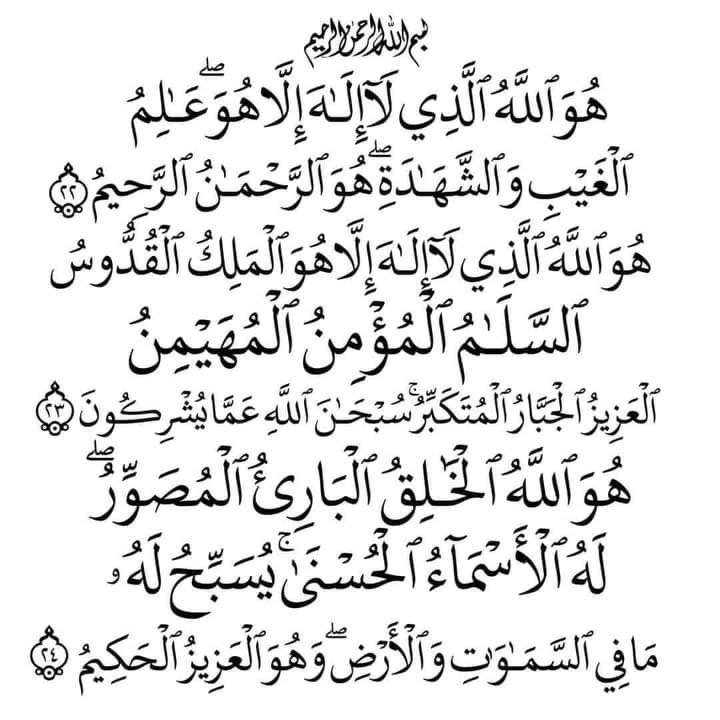 بسم الله الرحمن الرحيم
هُوَ ٱللَّهُ ٱلَّذِي لَآ إِلَـٰهَ إِلَّا هُوَ ۖ عَـٰلِمُ
ٱلْغَيْبِ وَٱلشَّهَـٰدَةِ ۖ هُوَ ٱلرَّحْمَـٰنُ ٱلرَّحِيمُ ٢٢
هُوَ ٱللَّهُ ٱلَّذِي لَآ إِلَـٰهَ إِلَّا هُوَ ٱلْمَلِكُ ٱلْقُدُّوسُ
ٱلسَّلَـٰمُ ٱلْمُؤْمِنُ ٱلْمُهَيْمِنُ
ٱلْعَزِيزُ ٱلْجَبَّارُ ٱلْمُتَكَبِّرُ ۚ سُبْحَـٰنَ ٱللَّهِ عَمَّا يُشْرِكُونَ ٢٣
هُوَ ٱللَّهُ ٱلْخَـٰلِقُ ٱلْبَارِئُ ٱلْمُصَوِّرُ ۖ
لَهُ ٱلْأَسْمَآءُ ٱلْحُسْنَىٰ ۚ يُسَبِّحُ لَهُۥ
مَا فِي ٱلسَّمَـٰوَٰتِ وَٱلْأَرْضِ ۖ وَهُوَ ٱلْعَزِيزُ ٱلْحَكِيمُ ٢٤